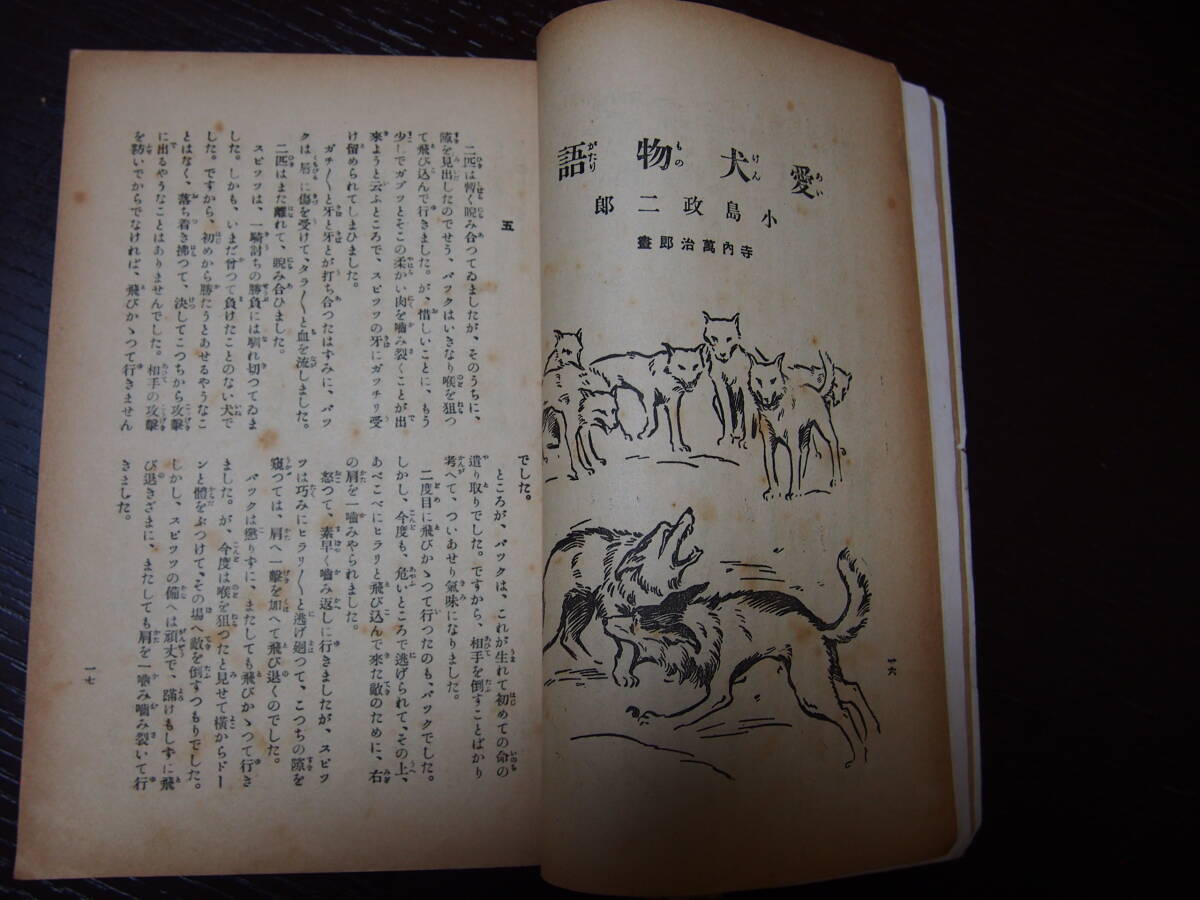 愛犬物語
小島政二郎
寺内萬治郎畫
一六
五
二匹は暫く睨み合つてゐましたが、そのうちに、
隙を見出したのでせう、バツクはいきなり喉を狙つ
て飛び込んで行きました。が、惜しいことに、もう
少しでガブツとそこの柔かい肉を嚙み裂くことが出
來ようと云ふところで、スピツツの牙にガツチリ受
け留められてしまひました。
ガチ〳〵と牙と牙とが打ち合つたはずみに、バツ
クは、唇に傷を受けて、タラ〳〵と血を流しました。
二匹はまた離れて、睨み合ひました。
スピツツは、一騎討ちの勝負には馴れ切つてゐま
した。しかも、いまだ曾つて負けたことのない犬で
した。ですから、初めから勝たうとあせるやうなこ
とはなく、落ち着き拂つて、決してこつちから攻擊
に出るやうなことはありませんでした。相手の攻擊
を防いでからでなければ、飛びかゝつて行きません
でした。
ところが、バツクは、これが生れて初めての命の
遣り取りでした。ですから、相手を倒すことばかり
考へて、ついあせり氣味になりました。
二度目に飛びかゝつて行つたのも、バツクでした。
しかし、今度も、危いところで逃げられて、その上、
あべこべにヒラリと飛び込んで來た敵のために、右
の肩を一嚙みやられました。
怒つて、素早く嚙み返しに行きましたが、スピツ
ツは巧みにヒラリ〳〵と逃げ廻つて、こつちの隙を
窺つては、肩へ一擊を加へて飛び退くのでした。
バツクは懲りずに、またしても飛びかゝつて行き
ました。が、今度は喉を狙つたと見せて橫からドー
ンと體をぶつけて、その場へ敵を倒すつもりでした。
しかし、スピツツの備へは頑丈で、蹌けもしずに飛
び退きざまに、またしても肩を一嚙み嚙み裂いて行
きました。
一七